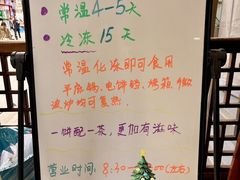 常温4-5天
冷冻15天
常温化冻即可食用
平底锅、电饼铛、烤箱、微
波炉均可复热.
一饼配一茶，更加有滋味
营业时间：8:30-
(左右)